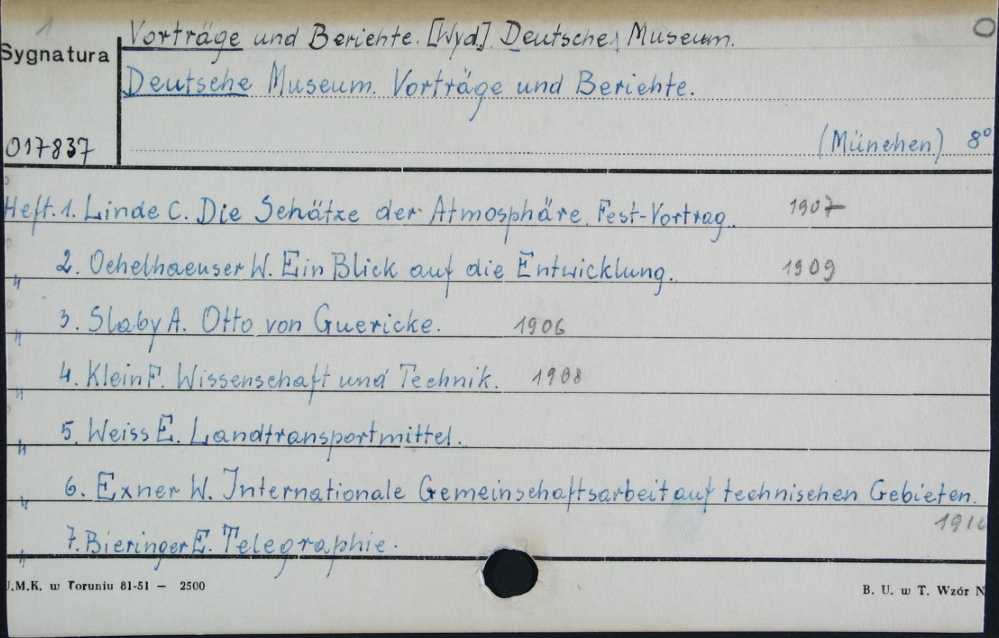 1 Vorträge und Berichte. [Wyd.] Deutsche Museum. O
Sygnatura
Deutsche Museum. Vorträge und Berichte.
017837
(München) 8°
Heft. 1. Linde C. Die Schätze der Atmosphäre. Fest-Vortrag. 1907
" 2. Oehelhaeuser W. Ein Blick auf die Entwicklung. 1909
" 3. Slaby A. Otto von Guericke. 1906
" 4. Klein F. Wissenschaft und Technik. 1908
" 5. Weiss E. Landtransportmittel.
" 6. Exner W. Internationale Gemeinschaftsarbeit auf technischen Gebieten.
" 7. Bieringer E. Telegraphie.
U.M.K. w Toruniu 81-51 — 2500
B. U. w T. Wzór N